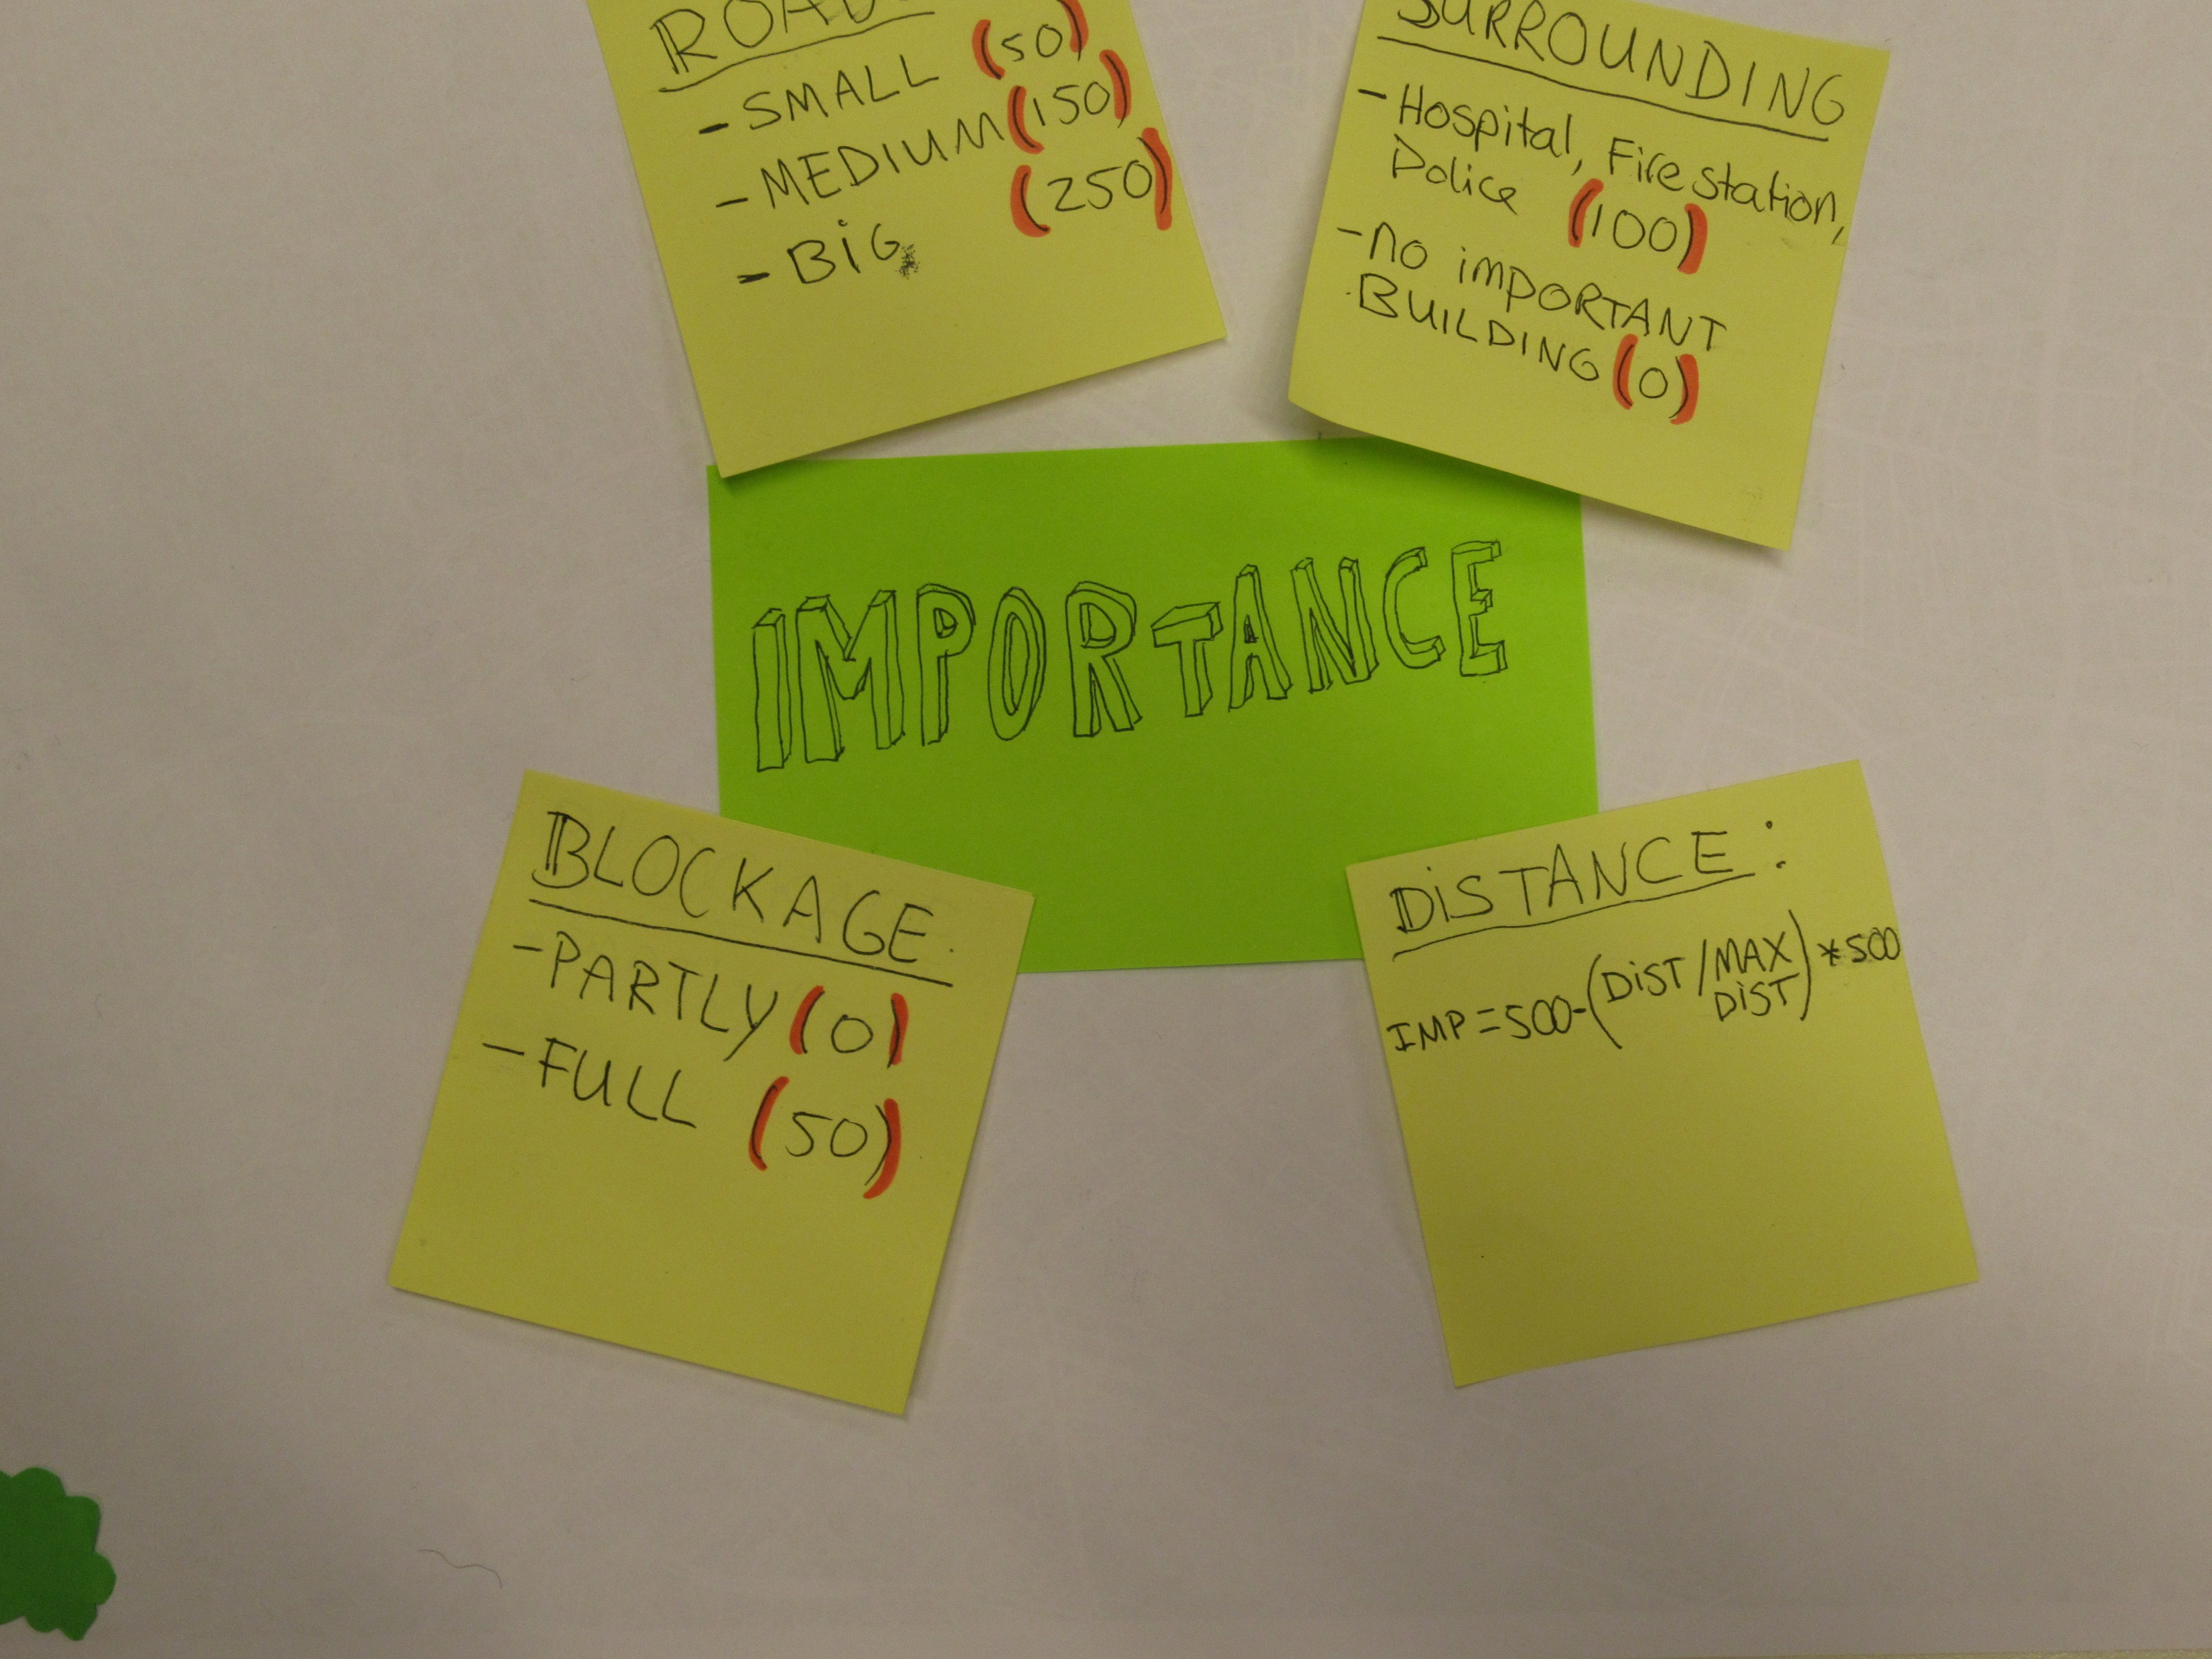 ROAD
- SMALL (50)
- MEDIUM (150)
- BiG (250)
SURROUNDING
- Hospital, Fire station,
Police (100)
- no impORTANT
BUILDING (0)
IMPORTANCE
BLOCKAGE
- PARTLY (0)
- FULL (50)
DiSTANCE:
IMP = 500 - (DiST / MAX DiST) * 500